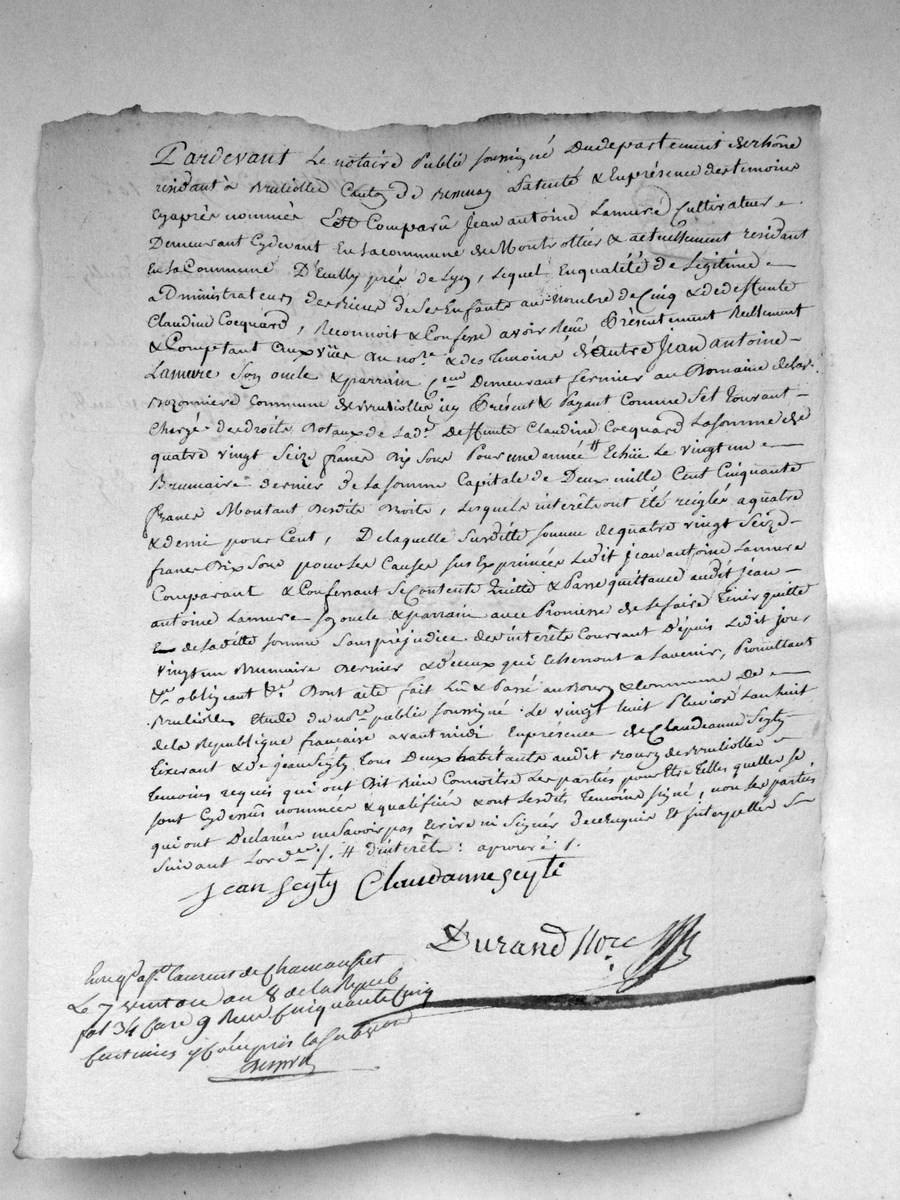 Pardevant Le notaire Public soussigné Dudepartement durhône
residant à Brulliolles Canton de Bessenay Patenté & Enpresence destemoins
Cyaprès nommés Est Comparû Jean antoine Lamure Cultivateur
Demeurant Cydevant En la commune de Montrottier & actuellement residant
En La Commune D'Ecully près de Lyon, Lequel Enqualité de Legitime
administrateur des Biens de ses Enfants au nombre de Cinq & dedeffunte
Claudine Cocquard, Reconnoit & Confesse avoir Reçu Présentement Reellement
& Comptant aux vües du nore & des temoins d'autre Jean antoine
Lamure Son oncle & parrain Demeurant fermier au Domaine dela
Rozonniere Commune de Brulliolles icy Présent & Payant Comme Set trouvant
Chargé des droits Dotaux de Lade Deffunte Claudine Cocquard La somme de
quatre vingt Seize francs Dix Sous Pour une année # Echüe Le vingt un
Brumaire dernier de La somme Capitale de Deux mille Cent Cinquante
francs Montant desdits Droits, Lesquels interêts ont été reiglés a quatre
& demi pour Cent, De laquelle Susditte somme de quatre vingt Seize
francs Dix Sous pour les Causes sus Exprimées Ledit Jean antoine Lamure
Comparant & Confessant se Contente Quitte & Passe quittance audit Jean
antoine Lamure Son oncle & parrain avec Promesse de le faire Tenir quitte
de laditte somme Sans préjudice des interêts Courrant Depuis Ledit jour
vingt un Brumaire Dernier & de ceux qui Cesseront a Lavenir, Promettant
&a obligeant &a Dont acte fait Lû & Passé au Bourg & Commune de
Brulliolles Etude du nore public soussigné Le vingt huit Pluviose Lan huit
de la Republique française avant midi En presence de Claudeanne Seyty
Tixerant & de Jean Seyty Tous Deux habitants audit Bourg de Brulliolles
temoins requis qui ont Dit Bien Connoitre Les parties pour Etre Telles quelles se
sont Cydessus nommées & qualifiées & ont Lesdits Temoins signé, non les parties
qui ont Déclarées ne Savoir pas Ecrire ni Signer de ce Enquis Et interpellés
Suivant Lordce /. # d'interêts : aprouvé /.
Jean Seyty Claudanne Seyti
Durand Nore
Enregé a St Laurent de Chamousset
Le 7 ventose an 8 de la Repub
fol 34 case 9 Reçu Cinquante Cinq
Centimes y Compris la Subvon